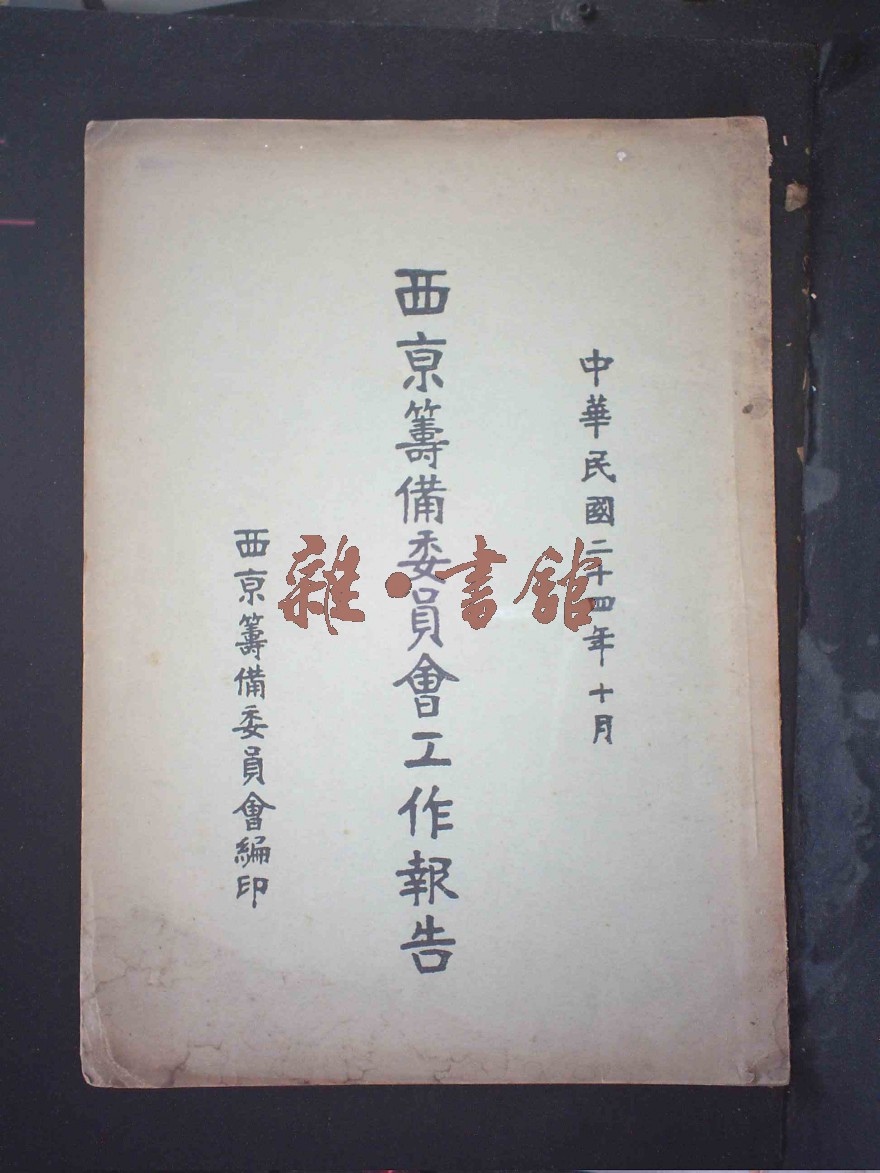 中華民國二十四年十月
西京籌備委員會工作報告
西京籌備委員會編印
雜·書館